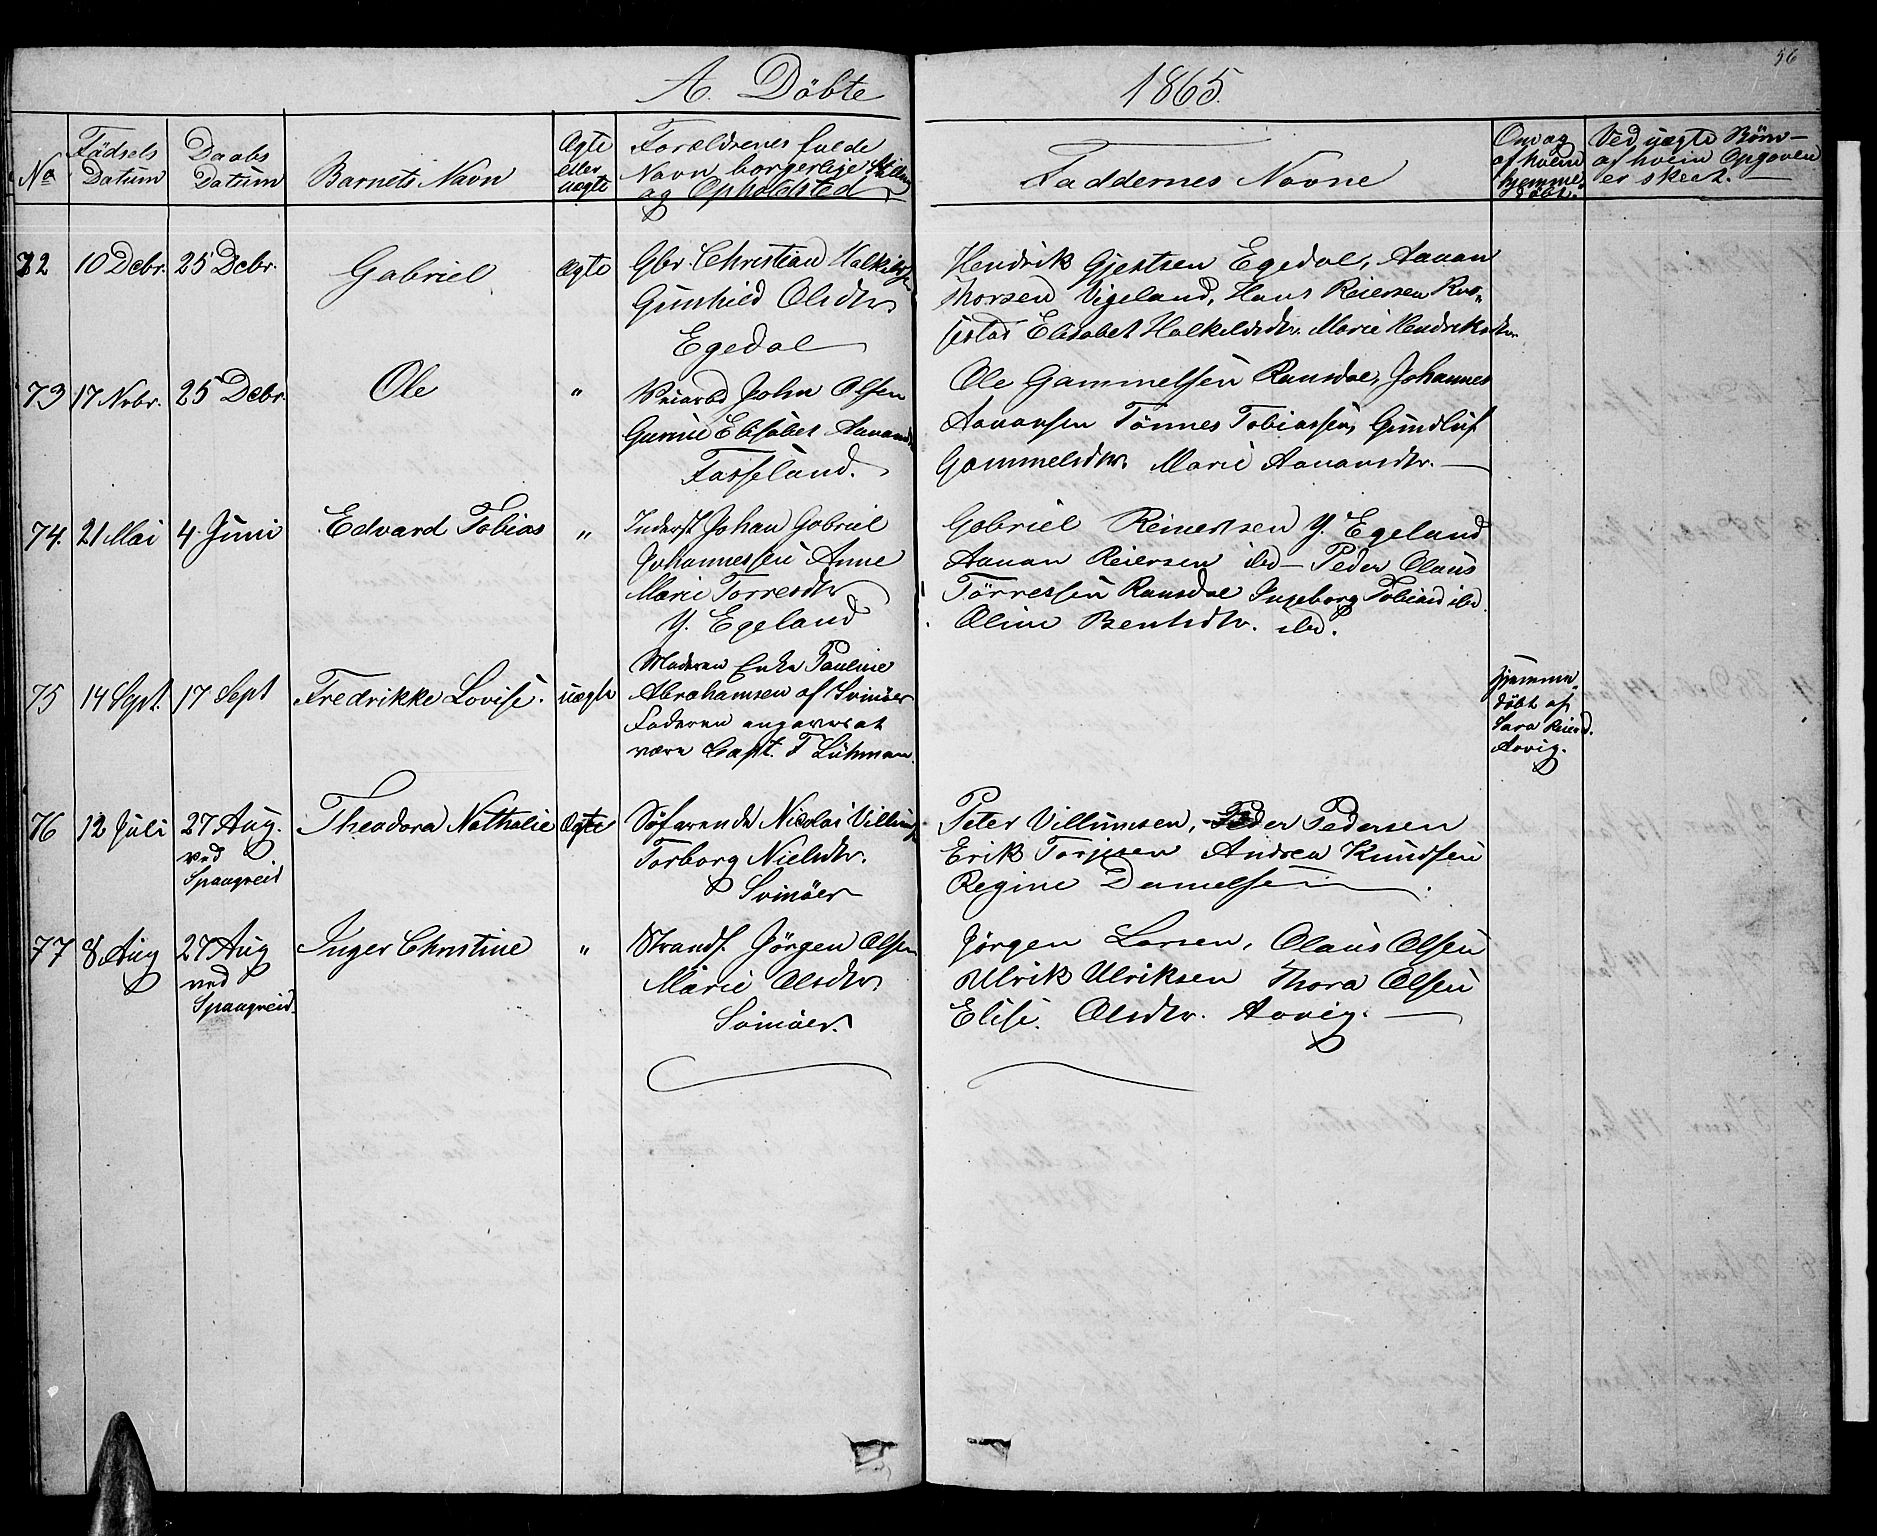 56
A. Döbte 1865.
No
Födsels Datum
Daabs Datum
Barnets Navn
Ægte eller uægte
Forældrenes fulde
Navn borgerlige Stilling
og Opholdsted
Faddernes Navne
Om og af hvem hjemmedöbt.
Ved uægte Börn
af hvem Opgaven
er skeet.
72 10 Debr. 25 Debr. Gabriel Ægte
Gbr Christian Halkilds
Gunhild Olsdtr
Egedal
Hendrik Gjertsen Egedal, Aanan
Thorsen Vigeland, Hans Reiersen Ros-
sestad Elisabet Halkildsdtr. Marie Hendriksdtr.
73 17 Nvbr. 25 Debr. Ole "
John Olsen
Gunnie Elisabet Aanansd
Fasseland.
Ole Gammelsen Ramsdal, Johannes
Aanansen Tönnes Tobiassen, Gundluf
Gammelsdtr. Marie Aanansdtr.
74. 21 Mai 4. Juni Edvard Tobias "
Inderst Johan Gabriel
Johannessen Anne
Marie Torresdtr
Y. Egeland
Gabriel Reinertsen Y. Egeland
Aanan Reiersen ibd Peder Olaus
Törressen Ramsdal Ingeborg Tobiasd ibd.
Oline Bentsdtr. ibd.
75 14 Sept. 17 Sept Fredrikke Lovise. uægte
Moderen Enke Pauline
Abrahamsen af Svinöer
Faderen angaves at
være Capt. F Lühman.
hjemme
döbt af
Sara Reiersd.
Aavig.
76 12 Juli 27 Aug. ved Spangreid Theodora Nathalie Ægte
Söfarende Nicolai Villums
Torborg Nielsdtr.
Svinöer
Peter Villumsen, Peder Pedersen
Erik Torjusen Andrea Knudsen
Regine Danielsen
77 8 Aug 27 Aug ved Spangreid. Inger Christine "
Strands. Jörgen Olsen
Marie Olsdtr.
Svinöer.
Jörgen Larsen, Olaus Olsen
Ulrik Ulriksen Thora Olsen
Elise. Olsdtr. Aavig.